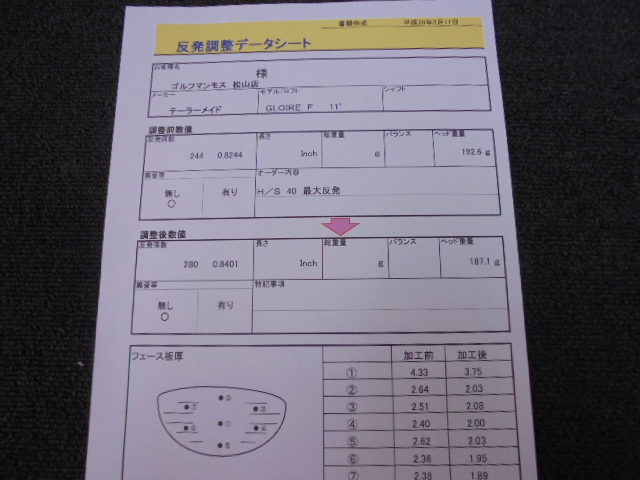 書類作成 平成28年3月11日
反発調整データシート
お客様名
様
ゴルフマンモス 松山店
メーカー モデル/ロフト シャフト
テーラーメイド GLOIRE F 11°
調整前数値
反発係数 長さ 総重量 バランス ヘッド重量
244 0.8244 Inch g 192.6 g
異音等 オーダー内容
無し 有り H/S 40 最大反発
○
調整後数値
反発係数 長さ 総重量 バランス ヘッド重量
280 0.8401 Inch g 187.1 g
異音等 特記事項
無し 有り
○
フェース板厚 加工前 加工後
① 4.33 3.75
② 2.64 2.03
③ 2.51 2.08
④ 2.40 2.00
⑤ 2.62 2.03
⑥ 2.36 1.95
⑦ 2.38 1.89
②
③
①
⑤